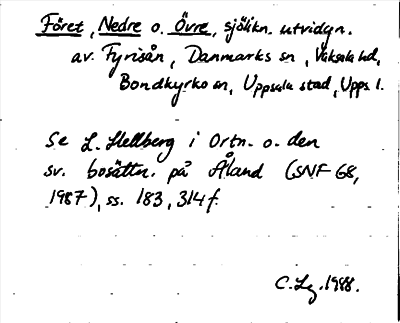 Föret, Nedre o. Övre, sjölikn. utvidgn.
av Fyrisån, Danmarks sn, Vaksala hd,
Bondkyrko sn, Uppsala stad, Upps. l.
Se L. Hellberg i Ortn. o. den
sv. bosättn. på Åland (SNF 68,
1987), ss. 183, 314 f.
C. Lg. 1988.